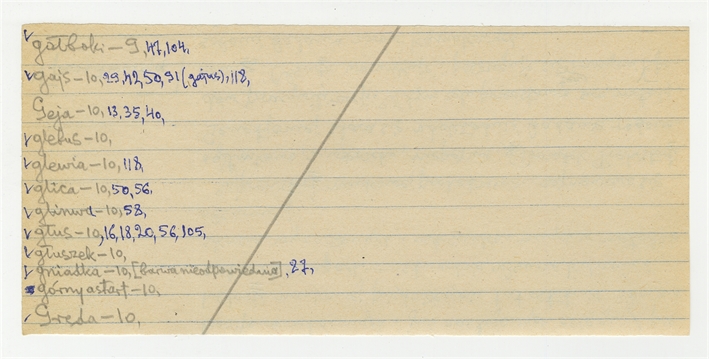 ✓ gołboki – 9, 47, 104,
✓ gajs – 10, 29, 42, 50, 91 (gajus), 118,
Geja – 10, 13, 35, 40,
✓ glebus – 10,
✓ glewia – 10, 118,
✓ glica – 50, 56,
✓ – 10, 58,
✓ głus – 10, 16, 18, 20, 56, 105,
✓ głuszek – 10,
✓ gniadka – 10, [barwa nieodpowiednia], 27,
górny astart – 10,
✓ Gręda – 10,